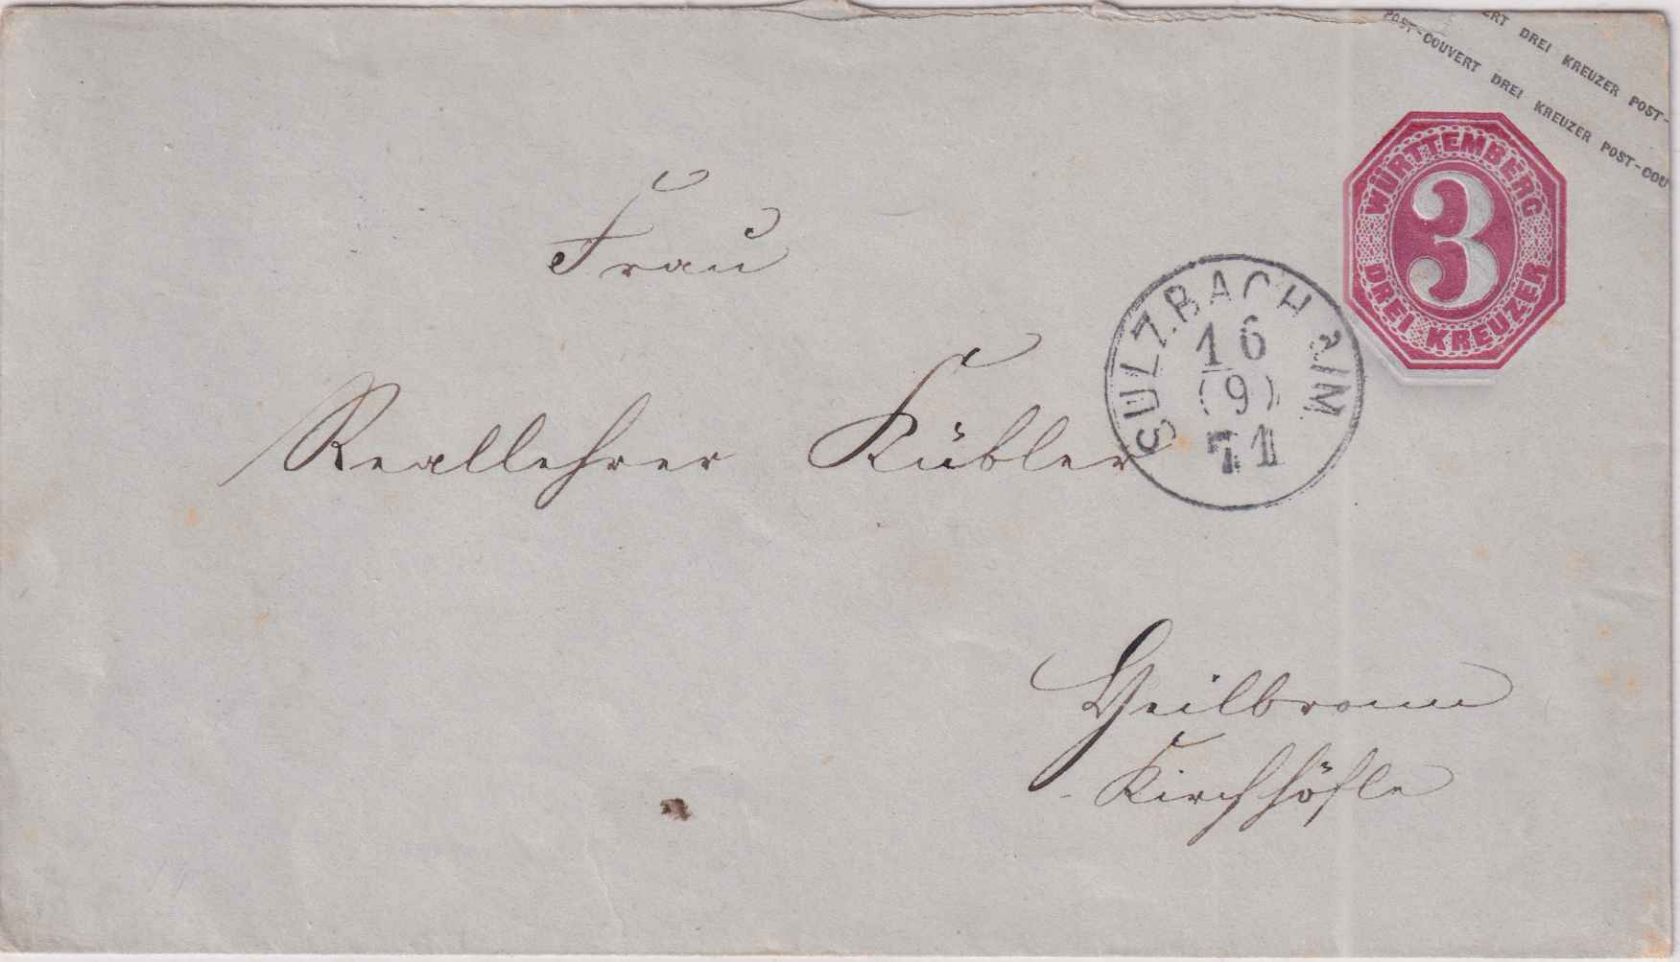 ERT DREI KREUZER POST-
POST-COUVERT DREI KREUZER POST-COU
WÜRTTEMBERG
3
DREI KREUZER
SULZBACH
16
(9)
71
Frau
Reallehrer Kübler
Heilbronn
Kirchhöfle